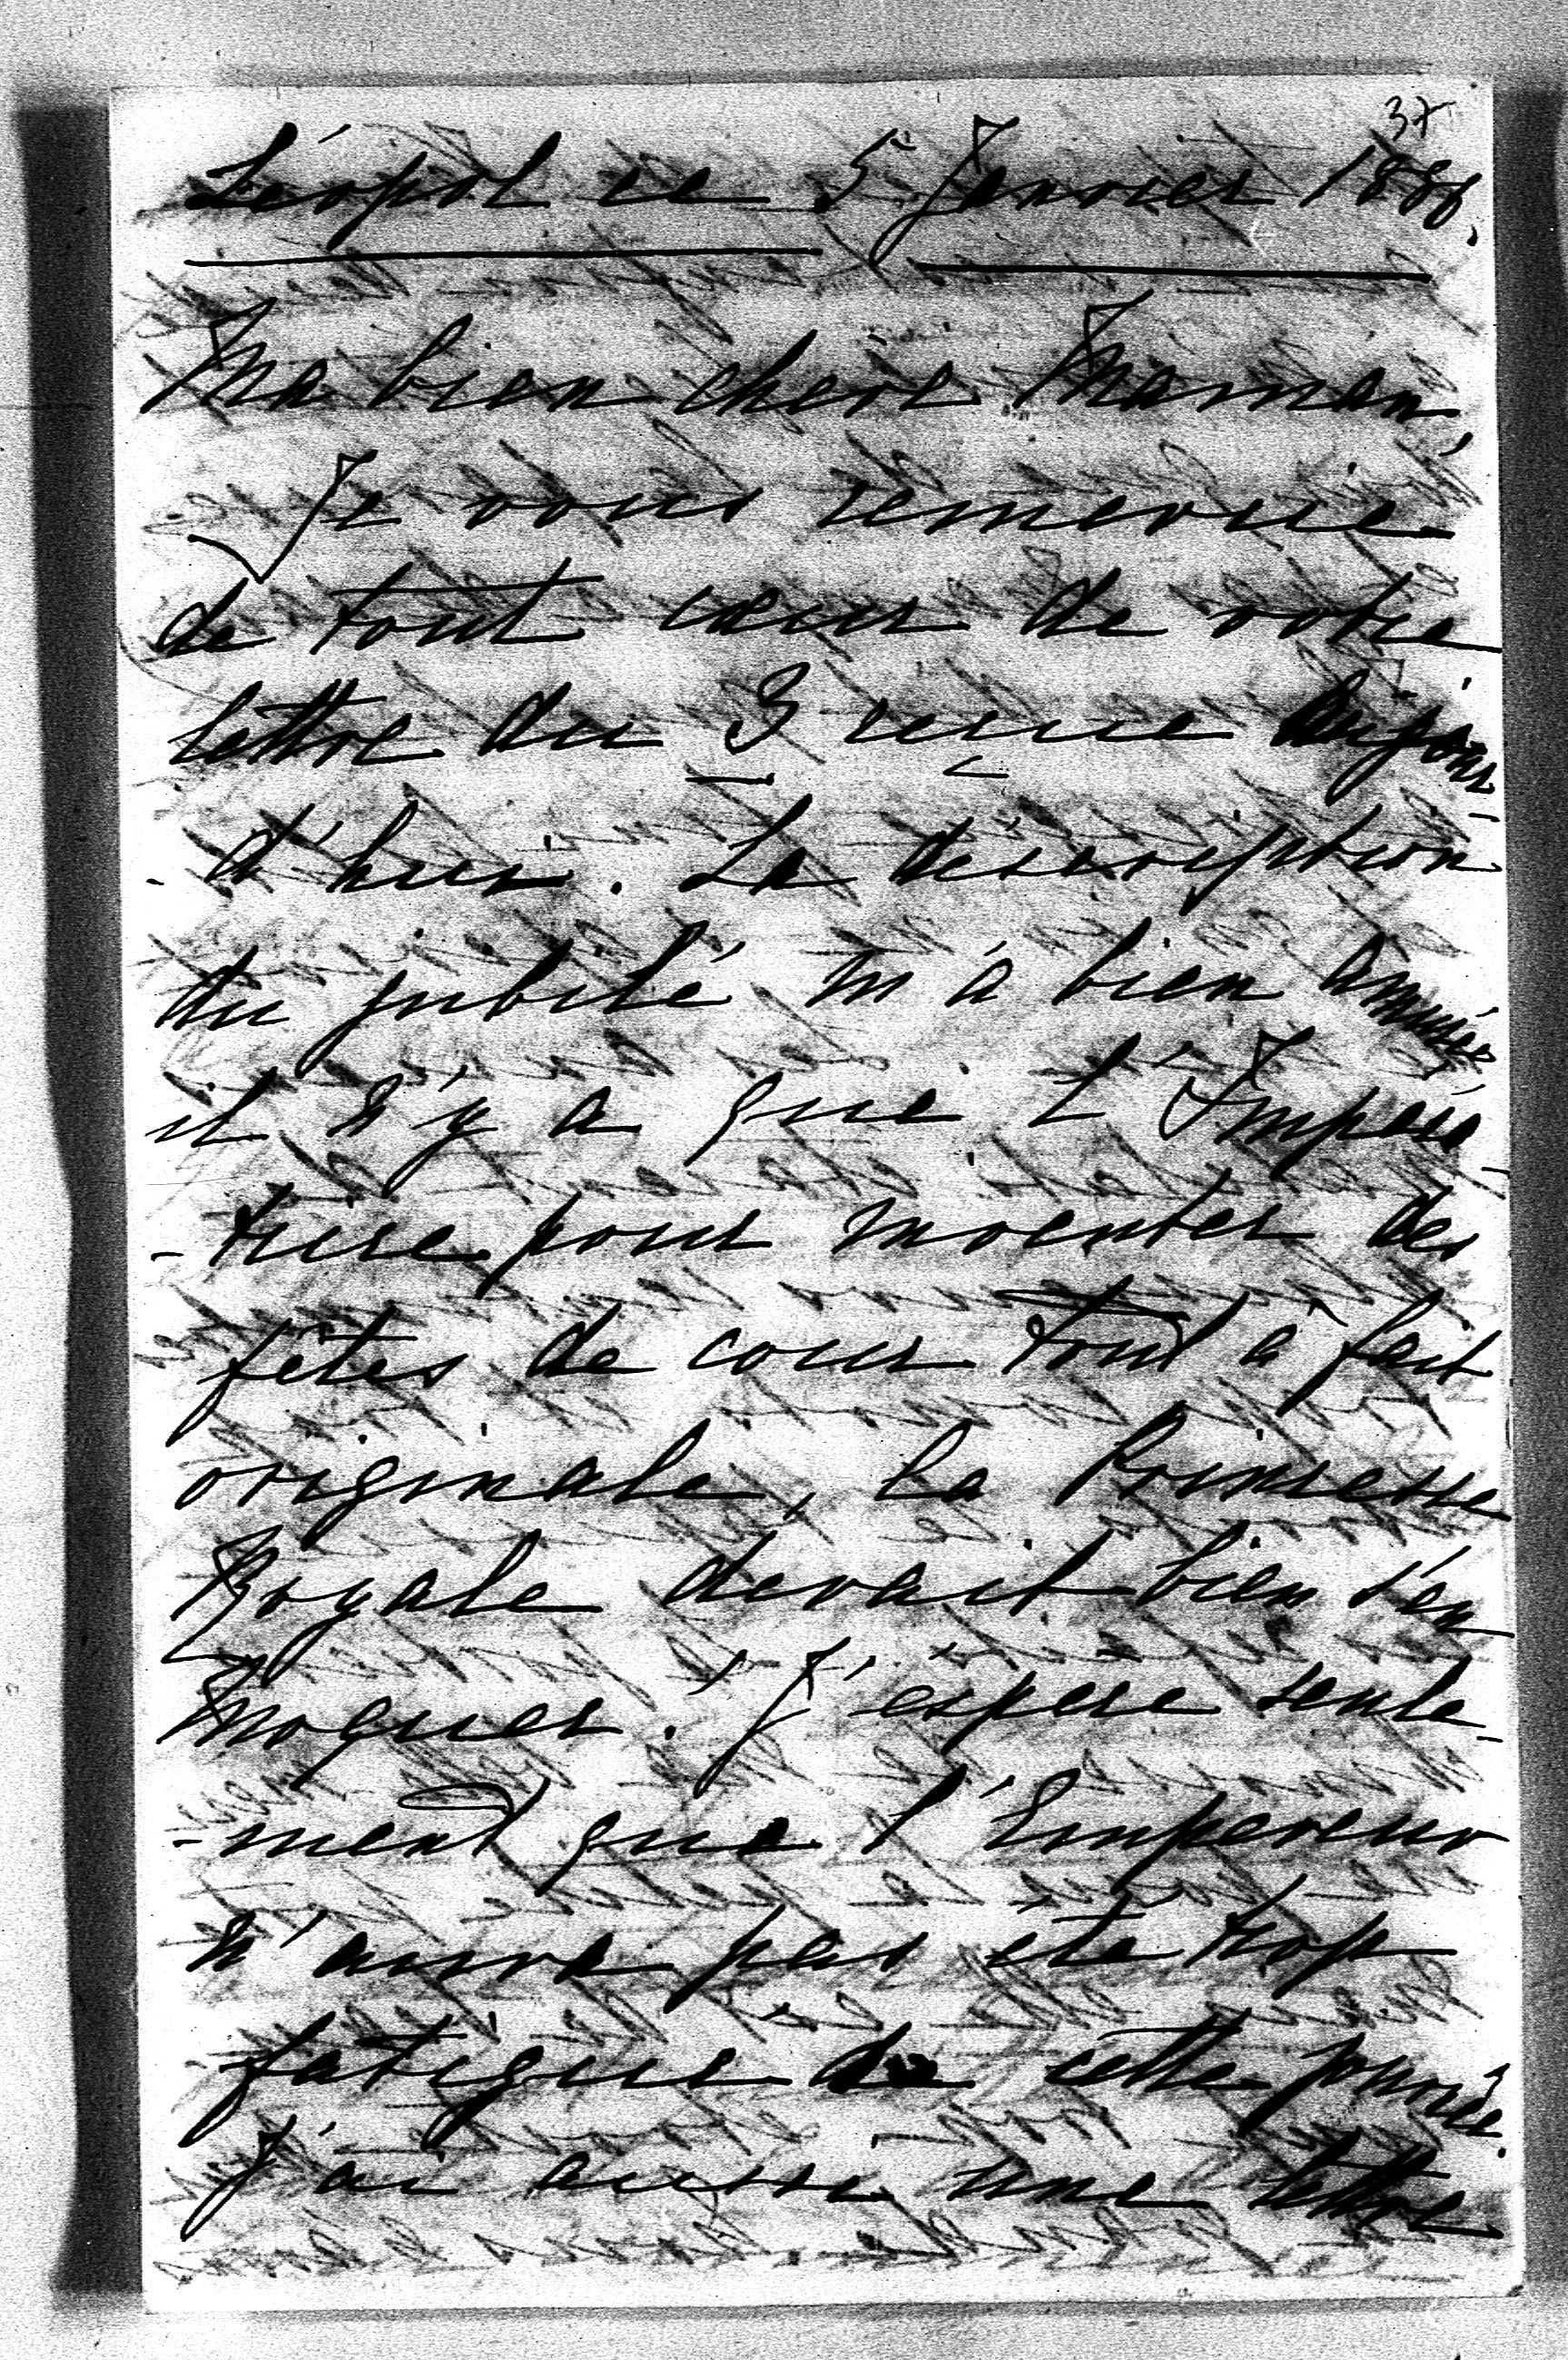 37
Léopol ce 5 Janvier 1888.
Ma bien chere Maman,
Je vous remercie
de tout cœur de votre
lettre du 3 reçue Aujour
- d'hui. La description
du jubilé m'a bien amusée
il n'y a que l'Impera
- trice pour inventer des
fêtes de cour tout à fait
originale, la Princesse
Royale devait bien s'en
moquer. J'espere seule-
- ment que l'Empereur
n'aura pas été trop
fatigué de cette journée.
J'ai aussi une lettre